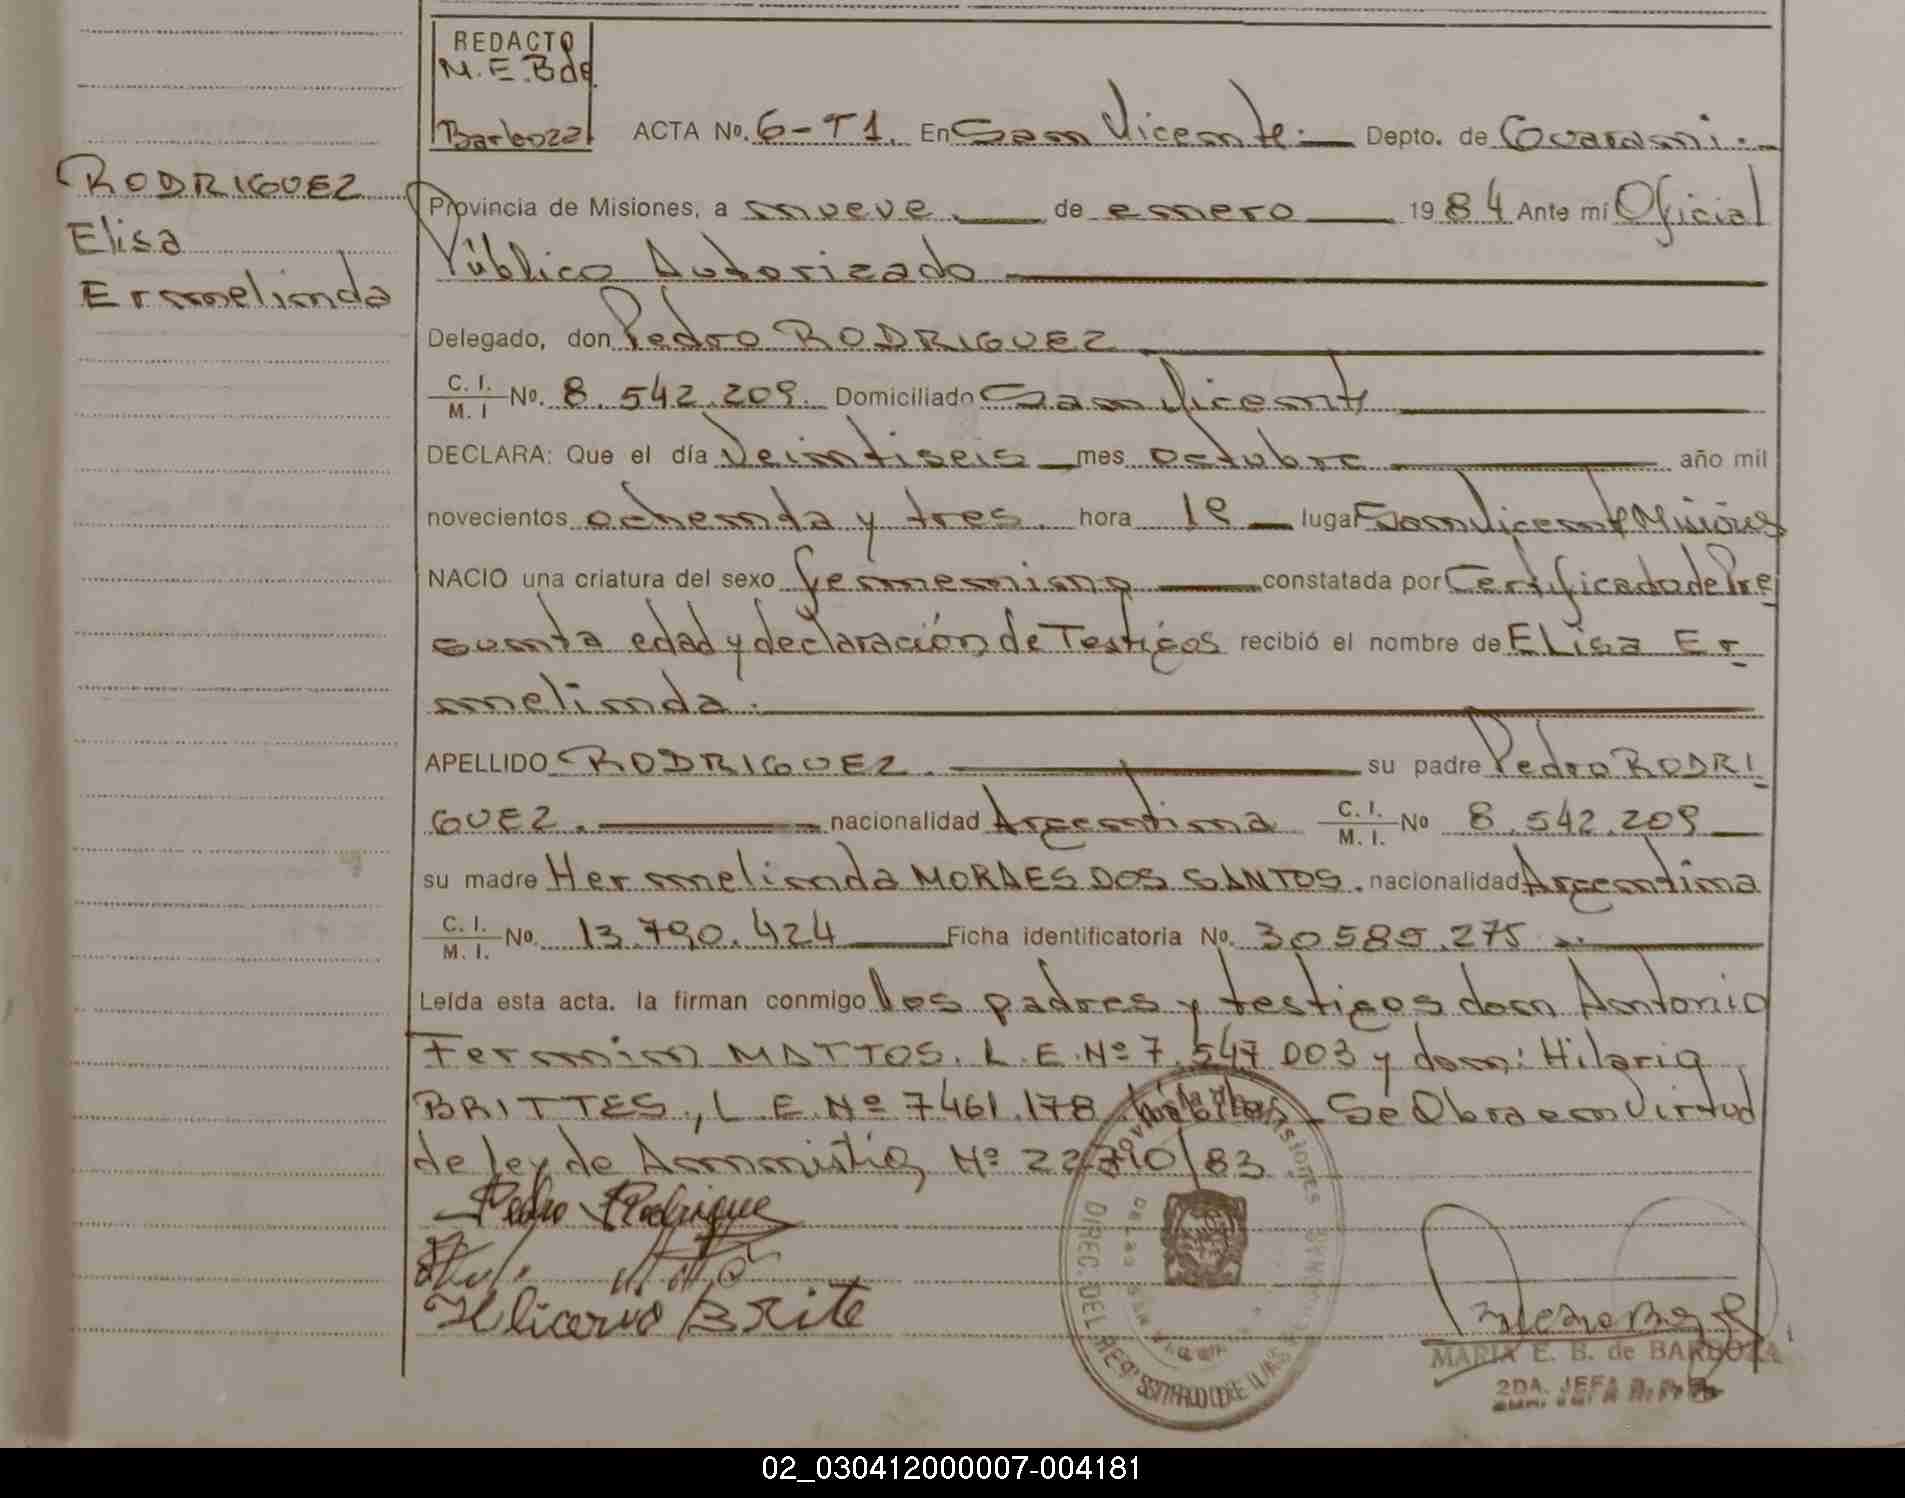 REDACTO
M. E. B de
Barboza
ACTA No. 6-T1. En San Vicente.- Depto. de Guarani.-
RODRIGUEZ
Elisa
Ermelinda
Provincia de Misiones, a nueve de enero 1984 Ante mi Oficial
Público Autorizado
Delegado, don Pedro RODRIGUEZ
C. I. / M. I No. 8.542.209. Domiciliado San Vicente
DECLARA: Que el día Veintiseis mes octubre año mil
novecientos ochenta y tres. hora 19 lugar San Vicente Misiones
NACIO una criatura del sexo femenino constatada por Certificado de Pre
sunta edad y declaración de Testigos recibió el nombre de ELisa Er
melinda.
APELLIDO RODRIGUEZ. su padre Pedro RODRI
GUEZ. nacionalidad Argentina C. I. / M. I. No 8.542.209
su madre Hermelinda MORAES DOS SANTOS. nacionalidad Argentina
C. I. / M. I. No. 13.790.424 Ficha identificatoria No. 30589.275
Leída esta acta. la firman conmigo los padres y testigos don Antonio
Fermin MATTOS. L. E. Nº 7.547.003 y don: Hilario
BRITTES, L E. Nº 7461.178 hábiles - Se Obra en Virtud
de ley de Amnistia, Nº 22.790/83
Pedro Rodrigue
BRite
DIREC. DEL REG
MARIA E. B. de BARBOZA
2DA. JEFA
02_030412000007-004181